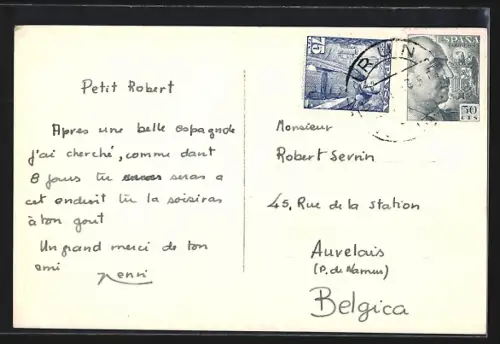 75
IRUN
ESPAÑA
50
CTS
Petit Robert
Apres une belle espagnole
j'ai cherché, comme dant
8 jours tu seras a
cet endroit tu la soisiras
à ton gout
Un grand merci de ton
ami
Henri
Monsieur
Robert Servin
45, Rue de la station
Auvelais
(P. de Namur)
Belgica